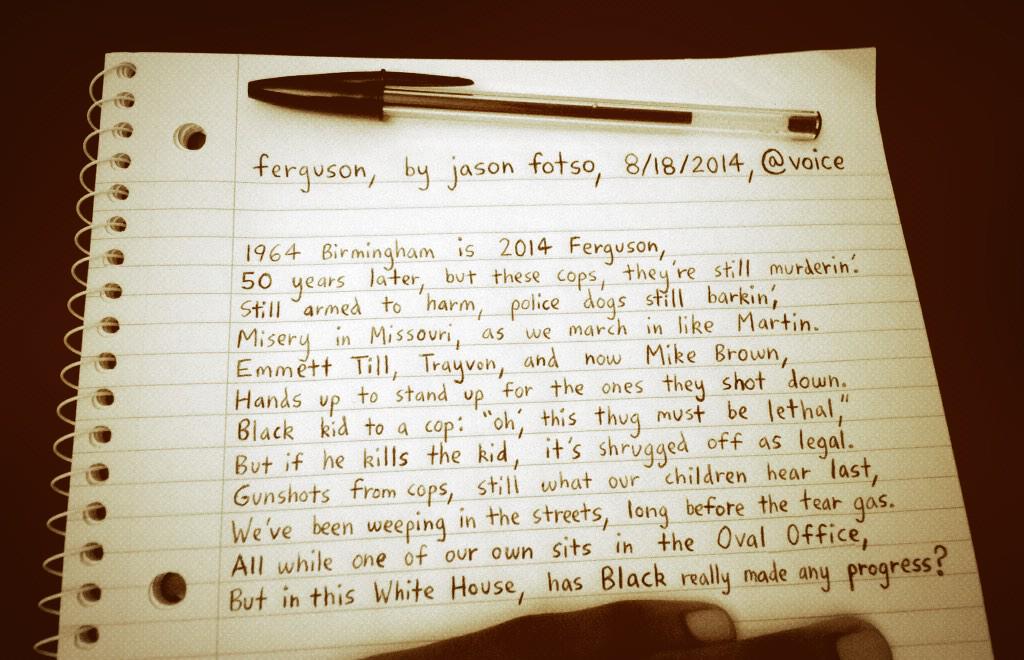 ferguson, by jason fotso, 8/18/2014, @voice
1964 Birmingham is 2014 Ferguson,
50 years later, but these cops, they're still murderin'.
Still armed to harm, police dogs still barkin',
Misery in Missouri, as we march in like Martin.
Emmett Till, Trayvon, and now Mike Brown,
Hands up to stand up for the ones they shot down.
Black kid to a cop: "oh, this thug must be lethal,"
But if he kills the kid, it's shrugged off as legal.
Gunshots from cops, still what our children hear last,
We've been weeping in the streets, long before the tear gas.
All while one of our own sits in the Oval Office,
But in this White House, has Black really made any progress?